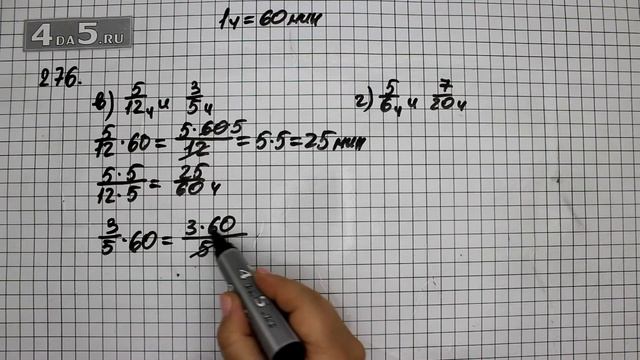 4 DA 5.RU
1ч = 60 мин
276.
в) 5/12 ч и 3/5 ч
г) 5/6 ч и 7/20 ч
5/12 · 60 = 5 · 60 5/12 = 5 · 5 = 25 мин
5 · 5/12 · 5 = 25/60 ч
3/5 · 60 = 3 · 60/5
4 DA 5